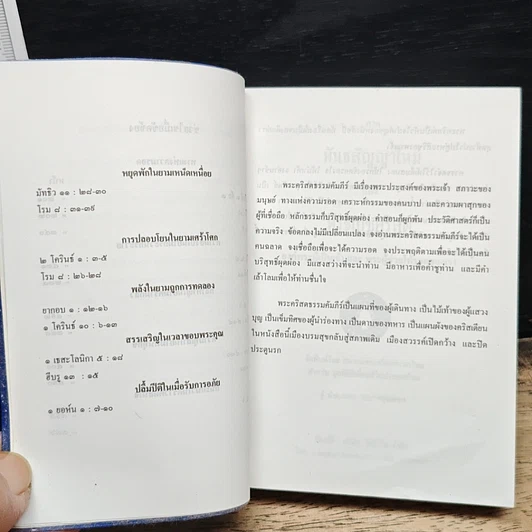 หยุดพักในยามเหน็ดเหนื่อย
มัทธิว ๑๑ : ๒๘-๓๐
โรม ๘ : ๓๑-๓๙
การปลอบโยนในยามเศร้าโศก
๒ โครินธ์ ๑ : ๓-๕
โรม ๘ : ๒๖-๒๘
พลังในยามถูกการทดลอง
ยากอบ ๑ : ๑๒-๑๖
๑ โครินธ์ ๑๐ : ๖-๑๓
สรรเสริญในเวลาขอบพระคุณ
๑ เธสะโลนิกา ๕ : ๑๘
ฮีบรู ๑๓ : ๑๕
ปลื้มปิติในเมื่อรับการอภัย
๑ ยอห์น ๑ : ๗-๑๐
พระคริสตธรรมคัมภีร์ มีเรื่องพระประสงค์ของพระเจ้า สภาวะของ
มนุษย์ ทางแห่งความรอด เคราะห์กรรมของคนบาป และความผาสุกของ
ผู้ที่เชื่อถือ หลักธรรมก็บริสุทธิ์ผุดผ่อง คำสอนก็ผูกพัน ประวัติศาสตร์ก็เป็น
ความจริง ข้อตกลงไม่มีเปลี่ยนแปลง จงอ่านพระคริสตธรรมคัมภีร์จะได้เป็น
คนฉลาด จงเชื่อถือเพื่อจะได้ความรอด จงประพฤติตามเพื่อจะได้เป็นคน
บริสุทธิ์ผุดผ่อง มีแสงสว่างที่จะนำท่าน มีอาหารเพื่อค้ำชูท่าน และมีคำ
เล้าโลมเพื่อให้ท่านชื่นใจ
พระคริสตธรรมคัมภีร์เป็นแผนที่ของผู้เดินทาง เป็นไม้เท้าของผู้แสวง
บุญ เป็นเข็มทิศของผู้นำร่องทาง เป็นดาบของทหาร เป็นแผนผังของคริสเตียน
ในหนังสือนี้เมืองบรมสุขกลับสู่สภาพเดิม เมืองสวรรค์เปิดกว้าง และปิด
ประตูนรก